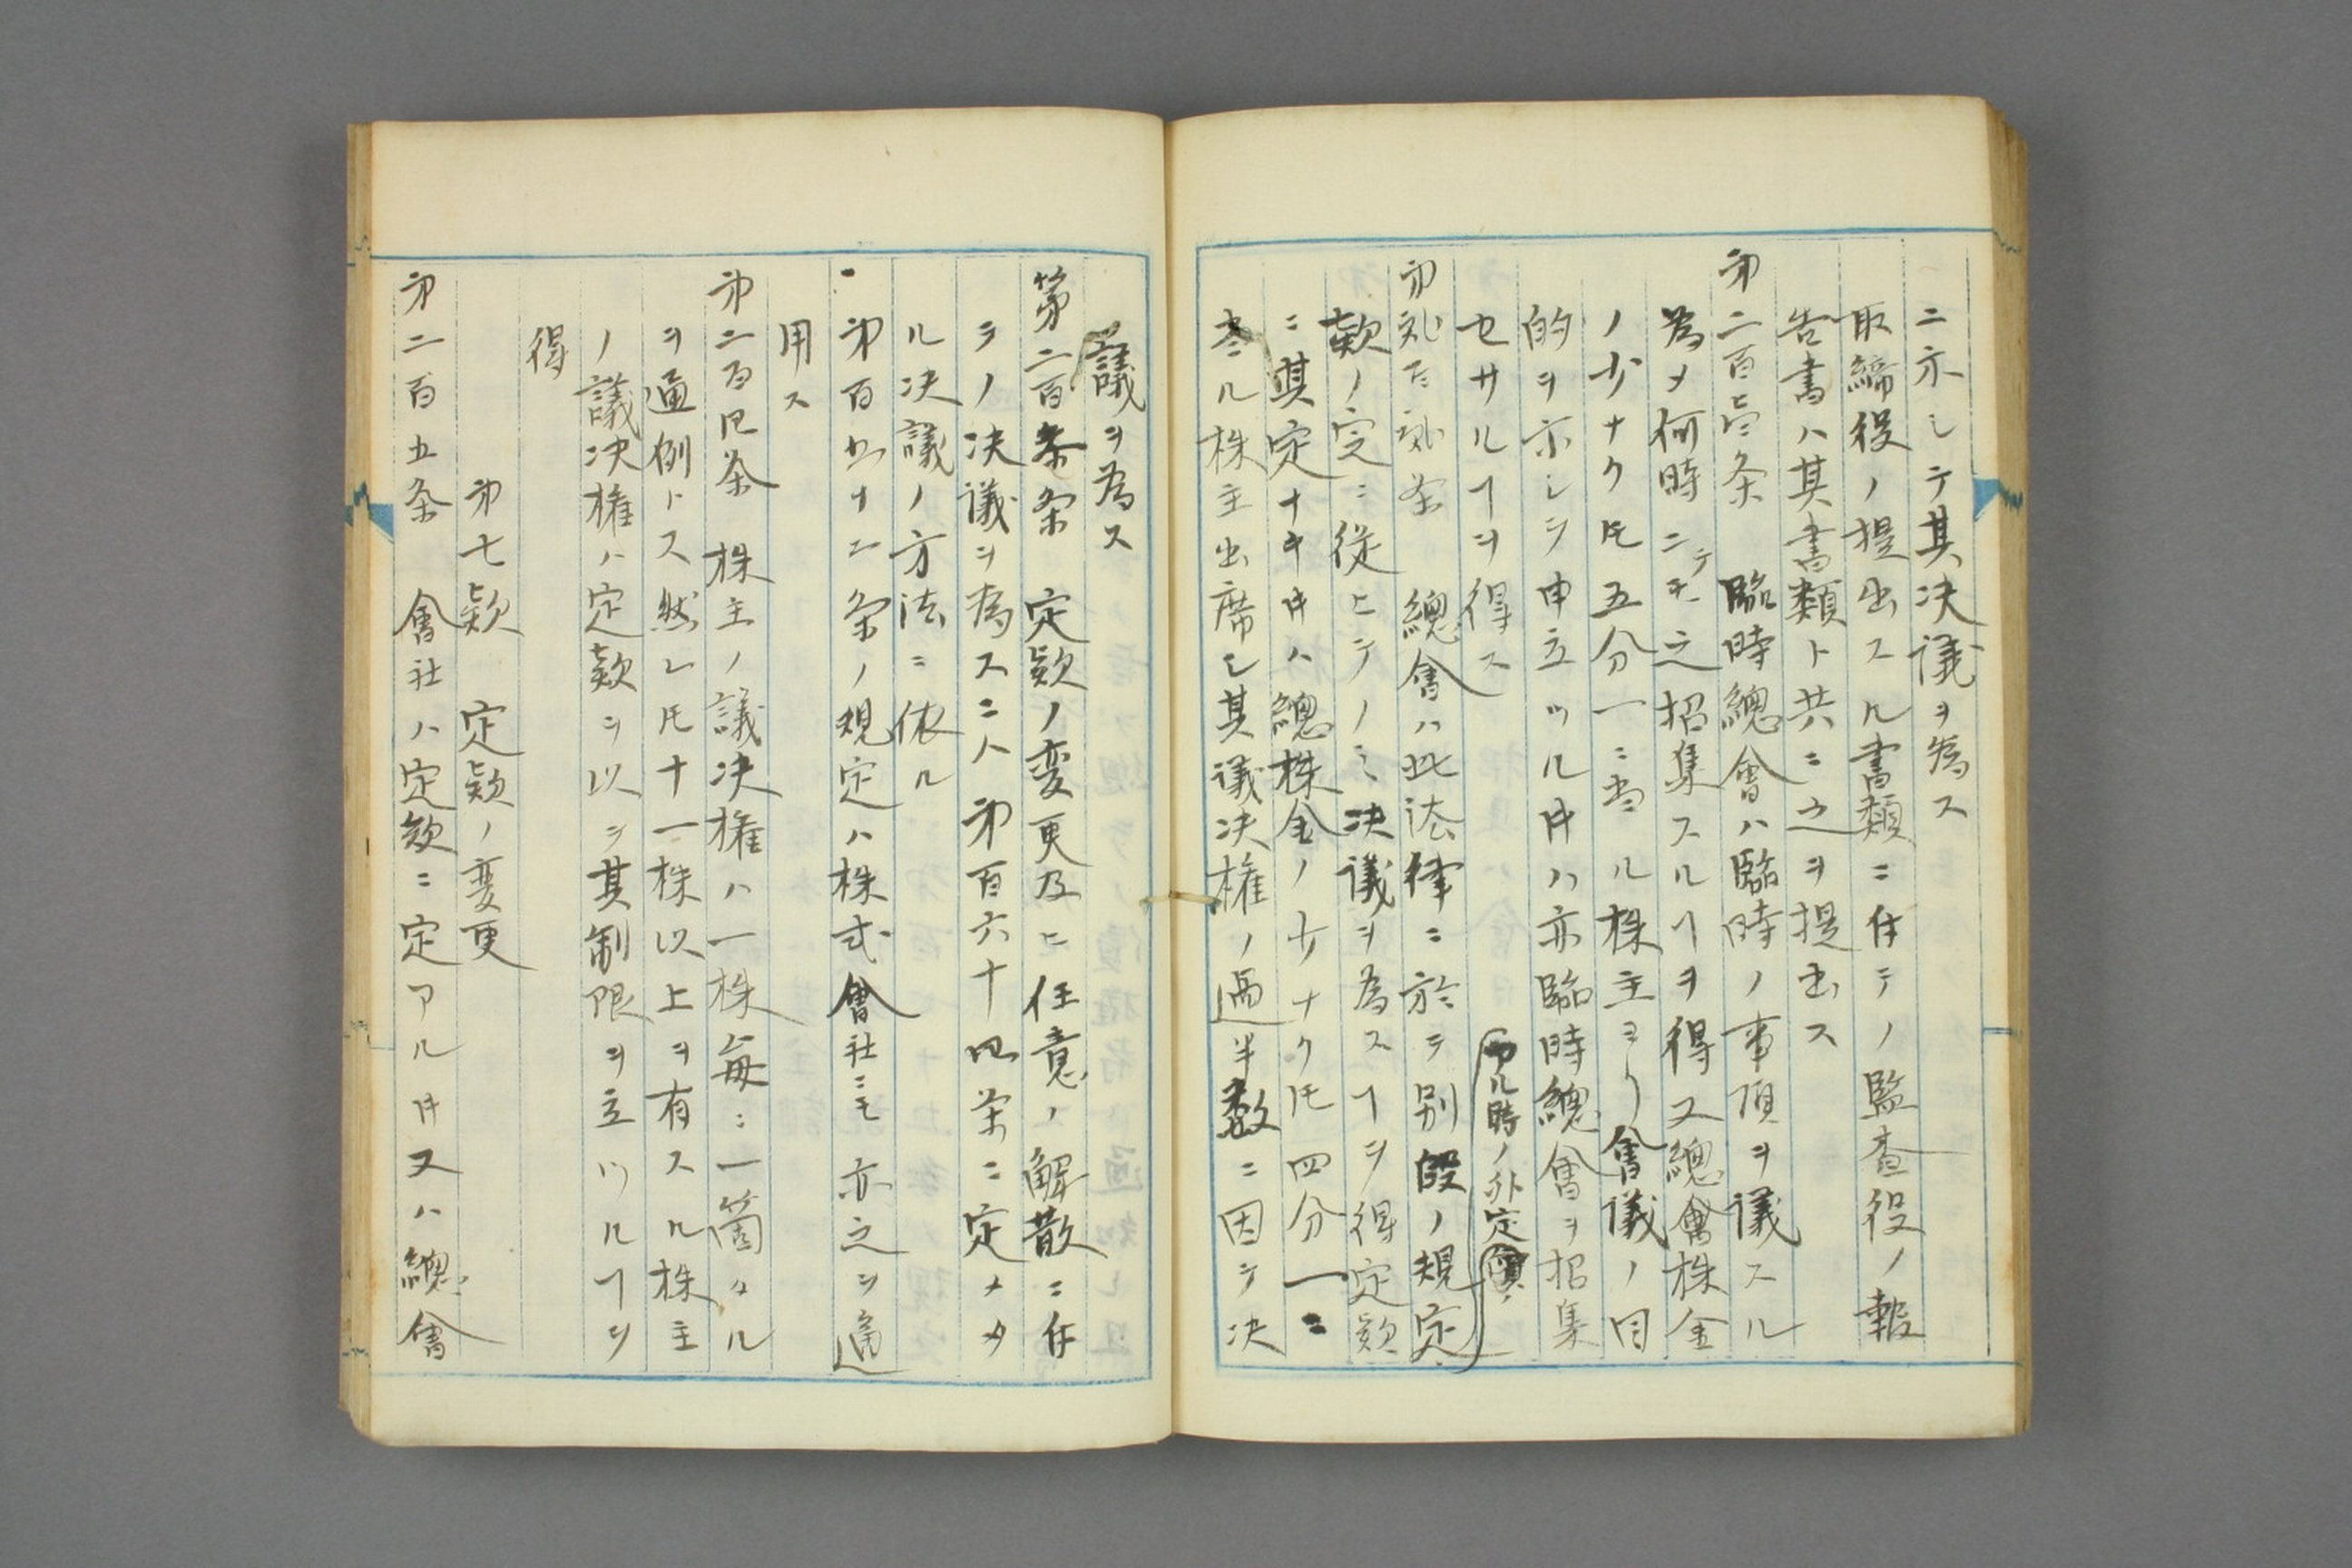 ニ示シテ其决議ヲ為ス
取締役ノ提出スル書類ニ付テノ監査役ノ報
告書ハ其書類ト共ニ之ヲ提出ス
㐧二百壱条 臨時總會ハ臨時ノ事項ヲ議スル
為メ何時ニテモ之招集スルヿヲ得又總會株金
ノ少ナクトモ五分一ニ當ル株主ヨリ會議ノ目
的ヲ示シテ申立ツルトキハ亦臨時總會ヲ招集
セサルヿヲ得ス
アル時ノ外定員
總會ハ此法律ニ於テ別段ノ規定
款ノ定ニ従ヒテノミ决議ヲ為スヿヲ得定款
ニ其定ナキトキハ總株金ノ少ナクトモ四分一ニ
當ル株主出席シ其議决權ノ過半数ニ因テ决
議ヲ為ス
第二百条 定款ノ変更及ヒ任意ノ解散ニ付
テノ决議ヲ為スニハ㐧百六十四条ニ定メタ
ル决議ノ方法ニ依ル
㐧百九十二条ノ規定ハ株式會社ニモ亦之ヲ適
用ス
㐧二百四条 株主ノ議决權ハ一株毎ニ一箇タル
ヲ通例トス然レトモ十一株以上ヲ有スル株主
ノ議决權ハ定款ヲ以テ其制限ヲ立ツルヿヲ
得
㐧七款 定款ノ変更
㐧二百五条 會社ハ定款ニ定アルトキ又ハ總會